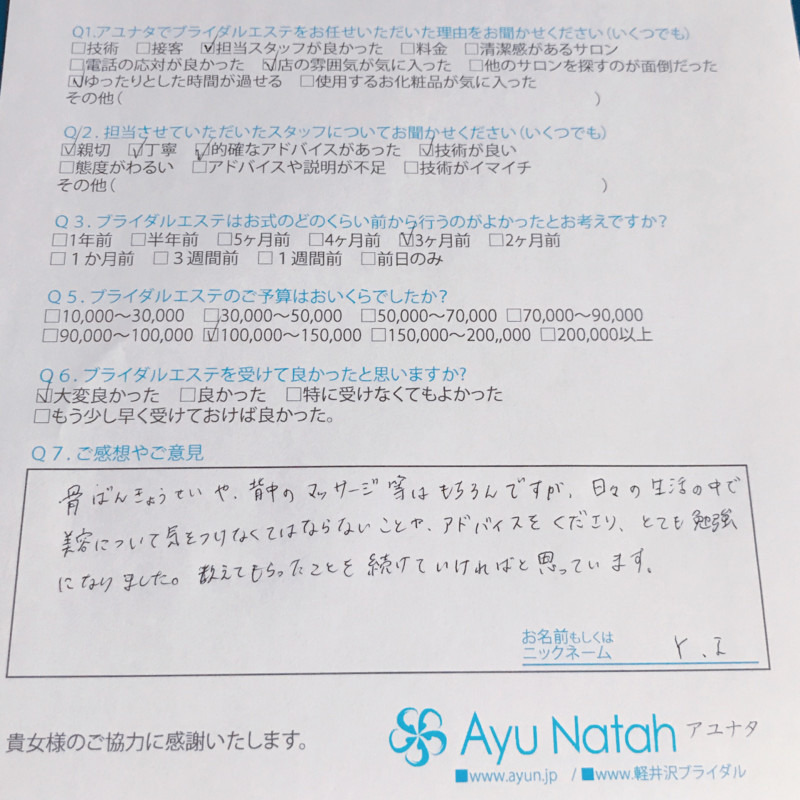 Q1.アユナタでブライダルエステをお任せいただいた理由をお聞かせください(いくつでも)
□技術 □接客 ☑担当スタッフが良かった □料金 □清潔感があるサロン
□電話の応対が良かった ☑店の雰囲気が気に入った □他のサロンを探すのが面倒だった
☑ゆったりとした時間が過せる □使用するお化粧品が気に入った
その他( )
Q/2.担当させていただいたスタッフについてお聞かせください(いくつでも)
☑親切 ☑丁寧 ☑的確なアドバイスがあった ☑技術が良い
□態度がわるい □アドバイスや説明が不足 □技術がイマイチ
その他( )
Q3.ブライダルエステはお式のどのくらい前から行うのがよかったとお考えですか?
□1年前 □半年前 □5ヶ月前 □4ヶ月前 ☑3ヶ月前 □2ヶ月前
□1か月前 □3週間前 □1週間前 □前日のみ
Q5.ブライダルエステのご予算はおいくらでしたか?
□10,000～30,000 □30,000～50,000 □50,000～70,000 □70,000～90,000
□90,000～100,000 ☑100,000～150,000 □150,000～200,,000 □200,000以上
Q6.ブライダルエステを受けて良かったと思いますか?
☑大変良かった □良かった □特に受けなくてもよかった
□もう少し早く受けておけば良かった。
Q7.ご感想やご意見
骨ばんきょうせいや、背中のマッサージ等はもちろんですが、日々の生活の中で
美容について気をつけなくてはならないことや、アドバイスをくださり、とても勉強
になりました。教えてもらったことを続けていければと思っています。
お名前もしくは
ニックネーム Y.I
貴女様のご協力に感謝いたします。
Ayu Natah アユナタ
■www.ayun.jp /■www.軽井沢ブライダル